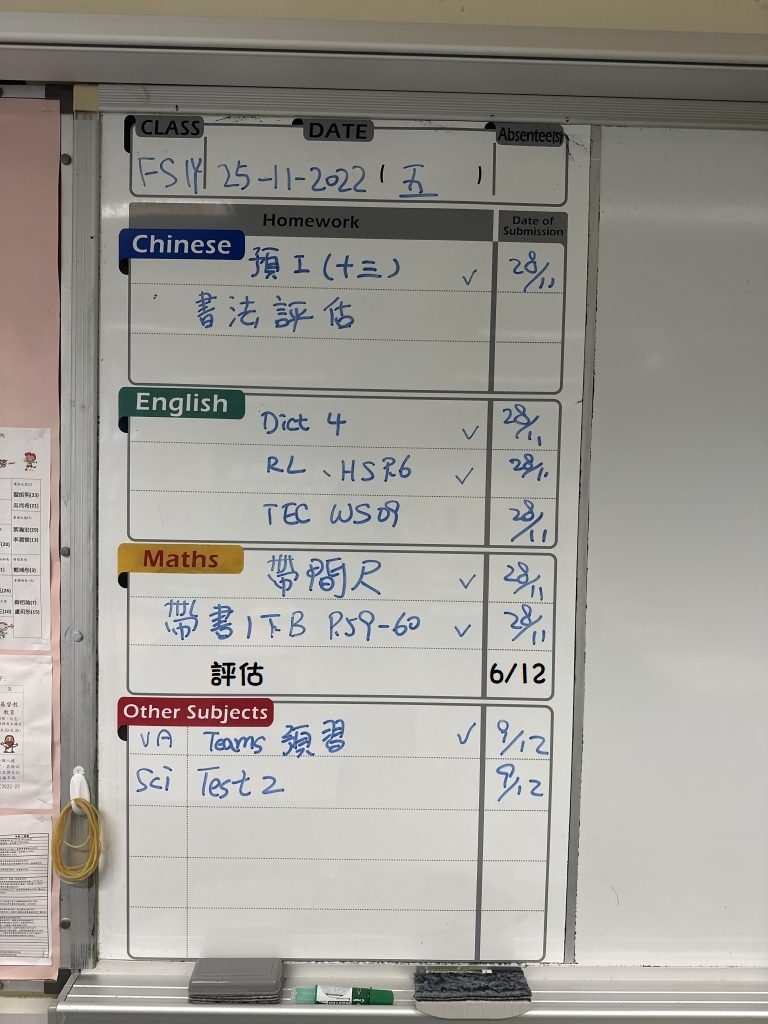 CLASS DATE Absentee(s)
FS1Y 25-11-2022 (五)
Homework Date of Submission
Chinese
預工(十三) ✓ 28/11
書法評估
English
Dict 4 ✓ 28/11
RL、HSP.6 ✓ 28/11
TEC WS09 28/11
Maths
帶間尺 ✓ 28/11
帶書1下B P.59-60 ✓ 28/11
評估 6/12
Other Subjects
VA Teams 預習 ✓ 9/12
Sci Test 2 9/12